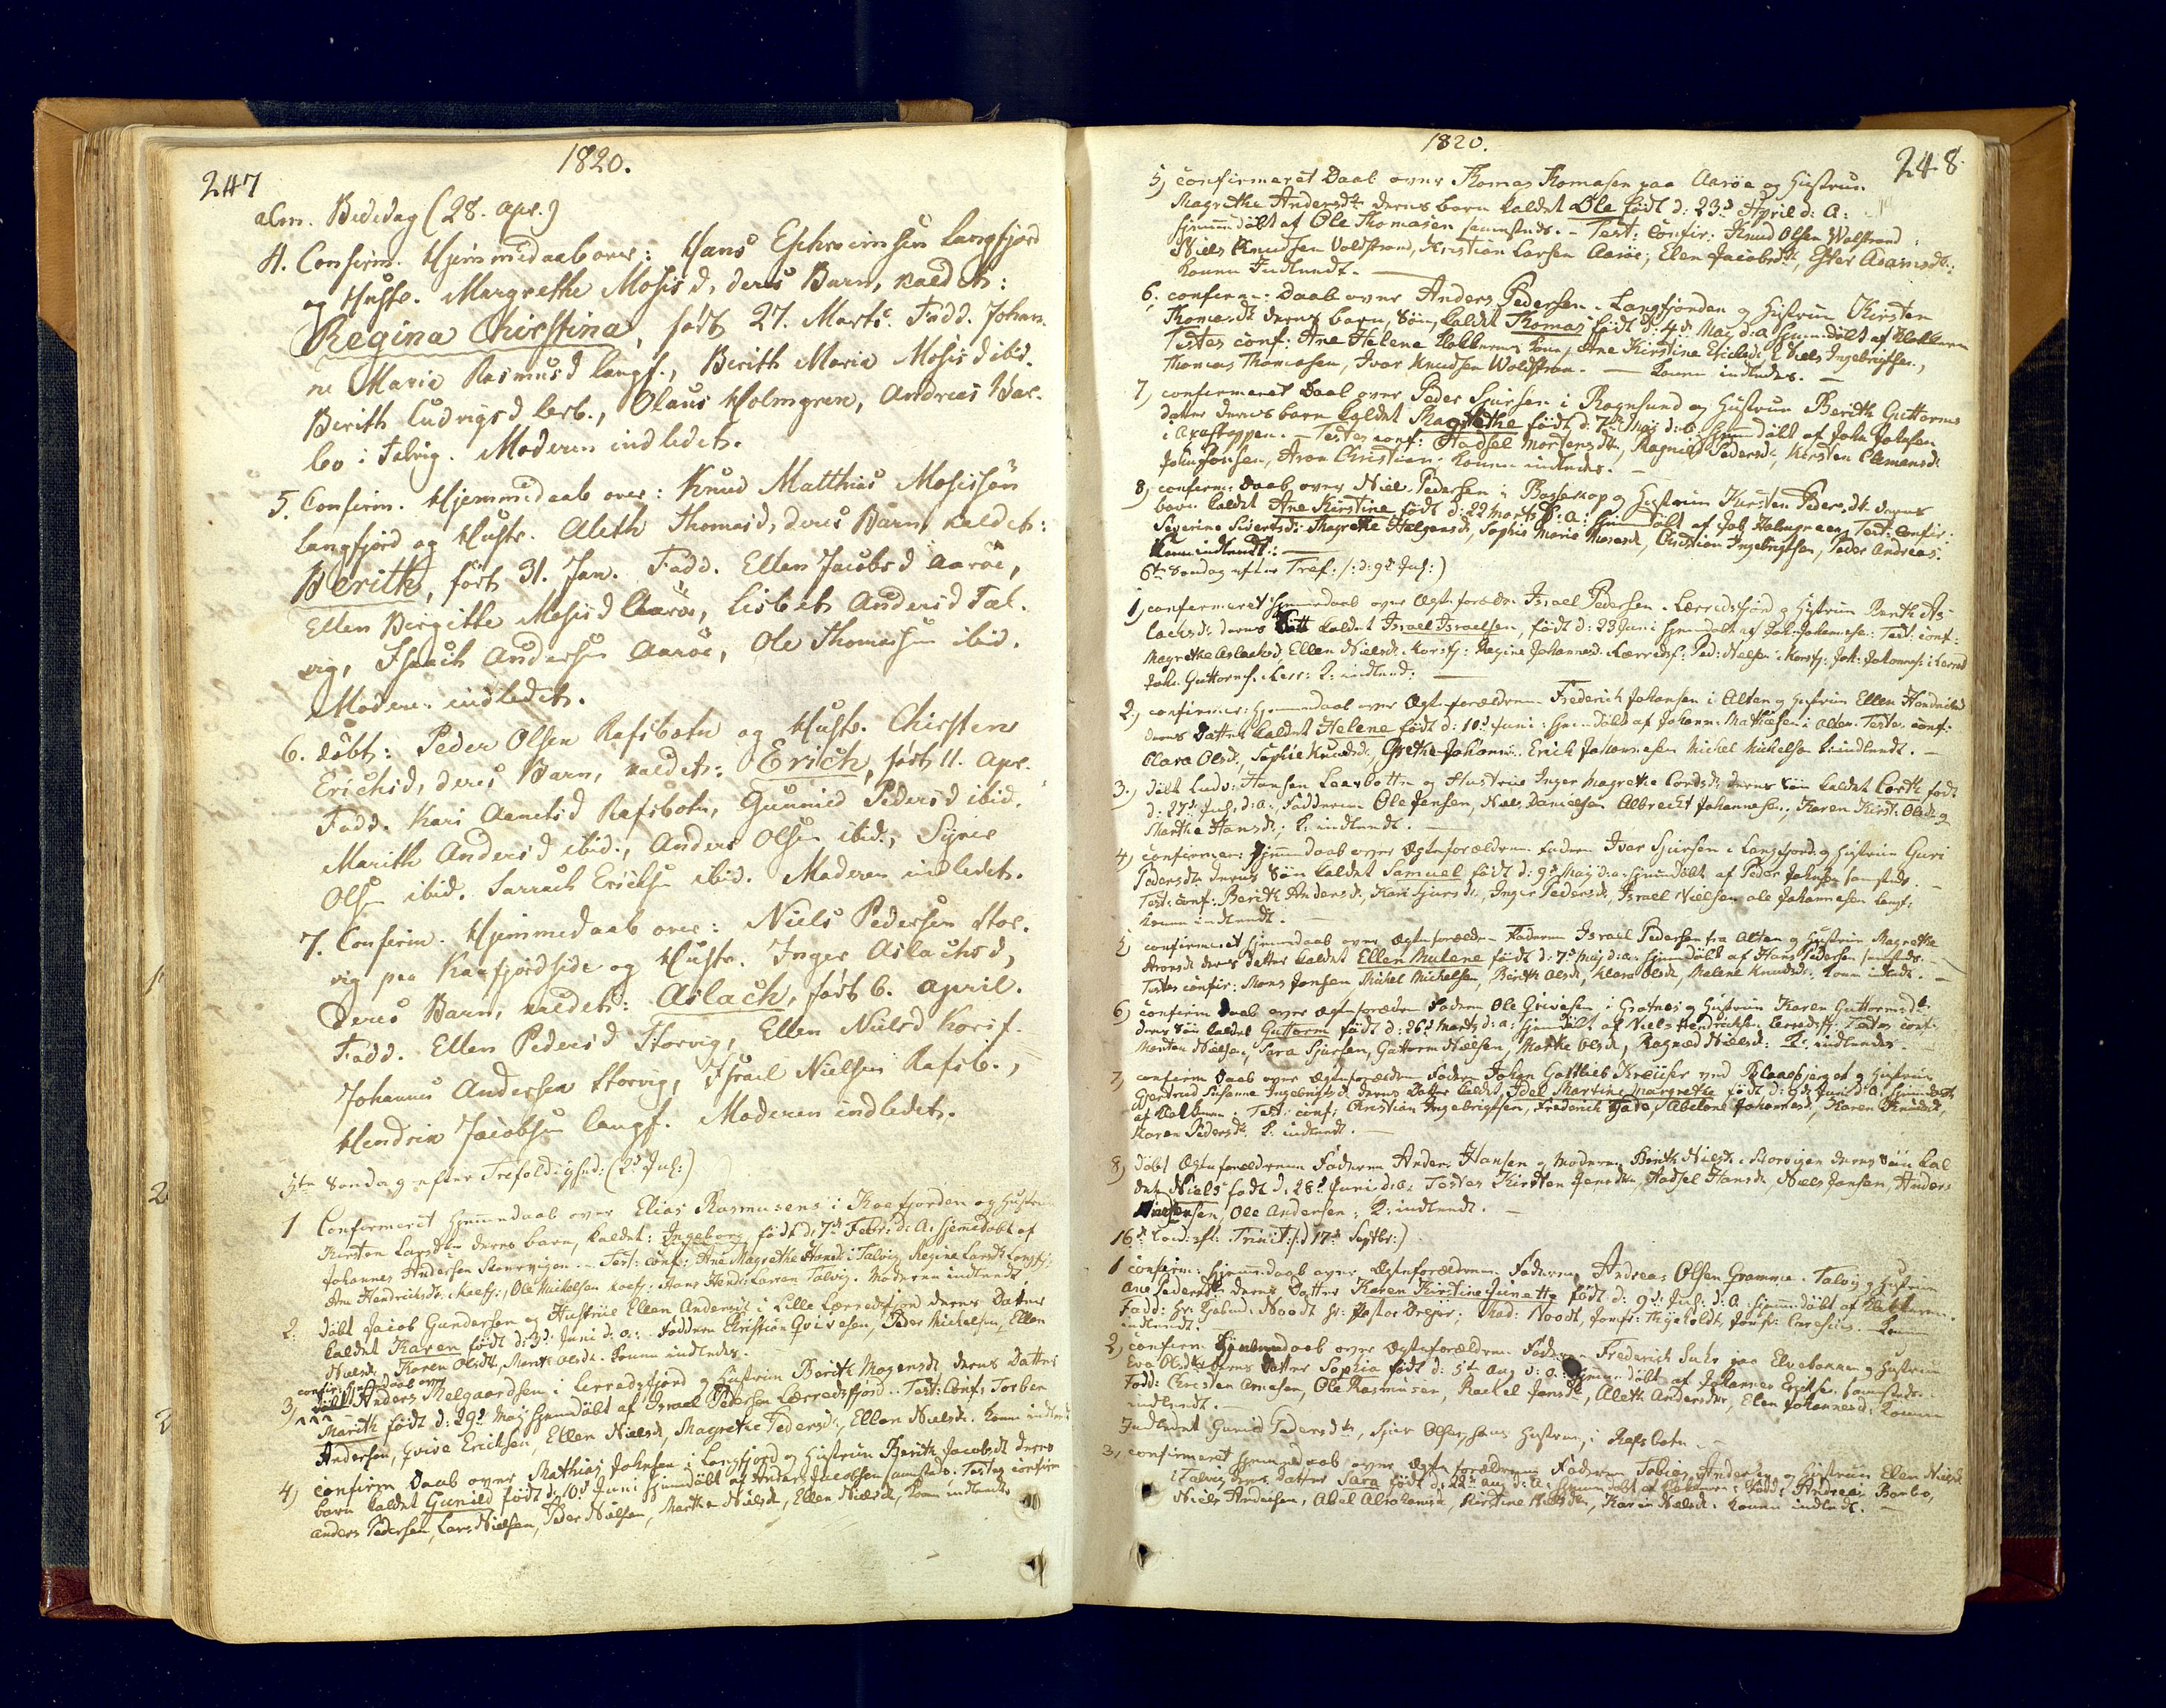 247
1820.
alm. Bededag (28. apr.)
4. Confirm. Hjemmedaab over: Hans Ephraimsen Langfjord
og Hustr. Margrethe Mosisd, deres Barn, kaldet:
Regina Chirstina, født 27. Marts. Fadd. Johan-
ne Maria Rasmusd Langf., Berith Maria Mosisd ibid.
Berith Ludvigsd Lerb., Olaus Holmgren, Andreas Bar-
bo i Talvig. Moderen indledet.
5. Confirm. Hjemmedaab over: Knud Matthias Mosissøn
Langfjord og Hustr. Aleth Thomasd, deres Barn, kaldet:
Berith, født 31. Jan. Fadd. Ellen Jacobsd Aarøe,
Ellen Birgitte Mosisd Aarøe, Lisbeth Andersd Tal-
vig, Isaach Andersen Aarøe, Ole Thomassen ibid.
Moderen indledet.
6. døbt: Peder Olsen Rafsbotn og Hustr. Chirsten
Erichsd, deres Barn, kaldet: Erich, født 11. Apr.
Fadd. Kari Arntsd Rafsbotn, Gunnild Pedersd ibid.
Marith Andersd ibid., Anders Olsen ibid., Siver
Olsen ibid. Sarrach Erichsen ibid. Moderen indledet.
7. Confirm. Hjemmedaab over: Niels Pedersen Stor-
vig paa Kaafjordside og Hustr. Inger Aslachsd,
deres Barn, kaldet: Aslach, født 6. april.
Fadd. Ellen Pedersd Storvig, Ellen Nielsd Korsf.
Johannes Andersen Storvig, Israel Nielsen Rafsb.,
Hendrix Jacobsen Langf. Moderen indledet.
5te Søndag efter Trefoldighed: (2d Jul:)
1 Confirmeret hjemmedaab over Elias Rasmusens i Kaafjorden og Hustrue
Kirsten Larsdtr deres barn, kaldet: Ingeborg født d: 7d Febr: d: A: hjemmedøbt af
Johannes Andersen Storvigen. - Test: conf: Ane Magrethe Hansd: i Talvig, Regine Larsdt Langfj:
Ane Hendrichsdt: Kaafj:, Ole Michelsen Kaafj: Hans Hend: Larsen Talvig. Moderen indlendt.
2: døbt Jacob Gundersen og Hustrue Ellen Andersdt i Lille Lerredsfjord deres Datter
kaldet Karen født d: 3d Juni d: a: Faddern Christian Qvivesen, Peder Michelsen, Ellen
Nielsdt, Karen Olsdt, Marth Olsdt. Konen indledes.
confir: hjemmedaab over
3, døbt Anders Melgaardsen i Lerredsfjord og Hustrue Berith Mogensdt deres Datter
Marith født d: 29d Maj hjemdøbt af Israel Pedersen Lerredsfjord. Test: Conf: Torben
Andersen, Qvive Erichsen, Ellen Nielsdt, Magrethe Pedersdt, Ellen Nielsdt. Konen indlendt
4, confirm Daab over Mathias Johnsen i Langfjord og Hustrue Berith Jacobsdt deres
barn kaldet Gunild født d: 10d Juni hjemdøbt af Anders Jacobsen sammesteds. Testes confirm
Anders Pedersen, Lars Nielsen, Peder Nielsen, Marthe Nielsdt, Ellen Nielsdt, Konen indlendt
1820.
248
5, confirmeret Daab over Thomas Thomasen paa Aarøe og Hustrue
Magrethe Andersdtr deres barn kaldet Ole født d: 23d April d: A:
hjemmedøbt af Ole Thomasen sammesteds. - Test: Confir: Knud Olsen Wolstrand
Niels Knudsen Voldstrand, Kristian Larsen Aarøe, Elen Jacobsdtr, Ester Adamsdt:
Konen Indlendt. -
6. confirm: Daab over Anders Pedersen Langfjorden og Hustrue Kirsten
Thomasdt deres barn, Søn, kaldet Thomas født d: 4d Maj d: a hjemdøbt af Klokkeren
Testes conf: Ane Helene Klokkerens Kone, Ane Kirstine Erichsdt, Niels Ingebrigtsen,
Thomas Thomasen, Ivar Knudsen Woldstran. - Konen indledes. -
7, confirmeret Daab over Peder Sjursen i Rognsund og Hustrue Berith Guttorms
datter deres barn kaldet Magrethe født d: 7de Maj d: a hjemdøbt af John Johnsen
i . Testes conf: Hadsel Mortensdtr, Ragnild Pedersdt, Kirsten Clemensdt
John Jonsen, Aron Christian: Konen indledes. -
8, confirm: Daab over Niels Pedersen i Bossekop og Hustrue Kirsten Pedersdt deres
barn kaldet Ane Kirstine født d: 22 Marts d: a: hjemdøbt af Job Holmgreen, Test: Confir:
Severine Sivertsdt: Magrethe Helgensdt, Sophie Marie, Christian Ingebrigtsen, Peder Andreas:
Konen indlendt: -
6te Søndag efter Tref: /: d: 9d Jul: )
1, confermeret hjemedaab over Ægteforældr: Israel Pedersen Lerredsfjord og Hustrue Berith As-
lachsdt: deres kaldet Israel Israelsen, født d: 23 Juni hjemdøbt af Joh: Johannesen: Test: conf:
Magrethe Aslachsd, Ellen Nielsdt: Korsfj: Regine Johannesd: Lerredsf: Ped: Nielsen i Korsfj: Joh: Johannes: i Lerred
Joh: Guttormsen Lerr: K: indlend:
2, confirmeret hjemmedaab over Ægteforældrene Frederich Johansen i Alten og Hustrue Ellen Hendrichsd
deres Datter kaldet Helene født d: 10d Juni: hjemdøbt af Johann: Mathiesen i Alten. Teste: conf:
Clara Olsd:, Sophie Knudsd, Grethe Johanns:, Erich Johannesen Michel Michelsen K: indlendt. -
3, døbt Ludv: Hansen Leerbotten og Hustrue Inger Magrethe Cordsdt: deres Søn kaldet Corth født
d: 27d Juli d: a:, Fadderne Ole Jensen, Niels Danielsen Albrecht Johannesen, Karen Kirst: Olsdt og
Marthe Hansdt:, K: indlendt. -
4, confirmer: hjemmedaab over Ægteforældrene Faderen Ivar Sjursen i Langfjord: og Hustrue Guri
Pedersdtr deres Søn kaldet Samuel født d: 9d Maj d: a: hjemdøbt af Peder Johnsen samsteds. -
Test: conf: Berith Andersdt, Kari Sjursdt, Inger Pedersdt, Israel Nielsen Ole Johannesen Langf:
Konen indlendt. -
5, confirmeret hjemedaab over Ægteforældr: Faderen Israel Pedersen fra Alten og Hustrue Magrethe
Aronsdt deres datter kaldet Ellen Malene født d: 7d Maj d: a: hjemdøbt af Hans Pedersen samsteds: -
Testes confir: Mons Jonsen, Michel Michelsen, Berith Olsdt, Klara Olsdt, Malene Knudsdt: Konen indlendt. -
6, confirm Daab over Ægteforældren Fadern Ole Qvivesen i Grotnes og Hustrue Karen Guttormsdtr
deres Søn kaldet Guttorm født d: 26d Marts d: a: hjemdøbt af Niels Hendrichsen Lerredsfj: Testes conf:
Morten Nielsen, Sara Sjursen, Guttorm Nielsen, Marthe Olsdt, Ragned Nielsdt: K: indlendes -
7, confirm Daab over Ægteforældren Fadern Johan Gottlieb Kreüser ved Blaaebjerget og Hustrue
Gjertrud Susanne Ingebrigtsd deres Datter kaldet Idel Martine Margrethe født d: 9de Juni d: a: hjemdøbt
af Klokkeren: Test: conf: Christian Ingebrigtsen, Frederich Gade, Abelone Johannesd, Karen Knudsd,
Karen Pedersdtr. K: indlendt. -
8, døbt Ægteforældrene Faderen Anders Hansen og Moderen Berith Nielsdt i Storvigen deres Søn kal
det Niels født d: 28d Juni d: a: Testes Kirsten Jensdtr, Hadsel Hansdt Niels Jonsen, Anders
Ole Andersen: K: indlendt. -
16d: Sønd: eft: Trinit: /: d 17d Septbr: )
1 confirm: hjemmedaab over Ægteforældrene Faderen Andreas Olsen Gramme i Talvig og Hustrue
Ane Pedersdtr deres Datter Karen Kirstine Junette født d: 9d Jul: d: A: hjemmedøbt af Klokkeren
Fadd: Hr Noodt Hr: Pastor Drejer, Mad: Noodt, Jomfr: Thygeholdt, Jomfr: Caresius. Konen
indlendt. -
2, confirm: hjemmedaab over Ægteforældren Faderen Frederich Suhr paa Elvebakken og Hustrue
Eva Olsdt: deres datter Sophia født d: 5te Aug: d: a: hjemmedøbt af Johannes Erichsen samsteds -
Fadd: Christen Arnesen, Ole Rasmusen, Rachel Jansdtr, Aleth Andersdtr, Elen Johannesd: Konen
indlendt. -
Indledet Gunild Pedersdtr, Sjur Olsens Hustrue, i Rafsbotn -
3, confirmeret hjemmedaab over Ægteforældrene Faderen Tobias Andersen og Hustrue Elen Nielsd
i Talvig deres datter Sara født d: 22de Aug d: A: hjemmedøbt af Klokkeren: Fadd: Andreas Barbo,
Niels Andersen, Abel Abrahamsd, Kirstine Nielsdtr, Karen Nielsd: Konen indledt. -